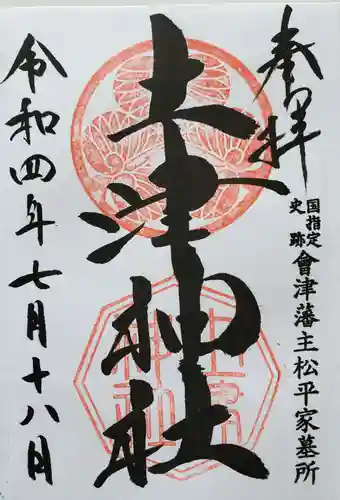 奉拝
国指定
史跡
會津藩主松平家墓所
土津神社
令和四年七月十八月